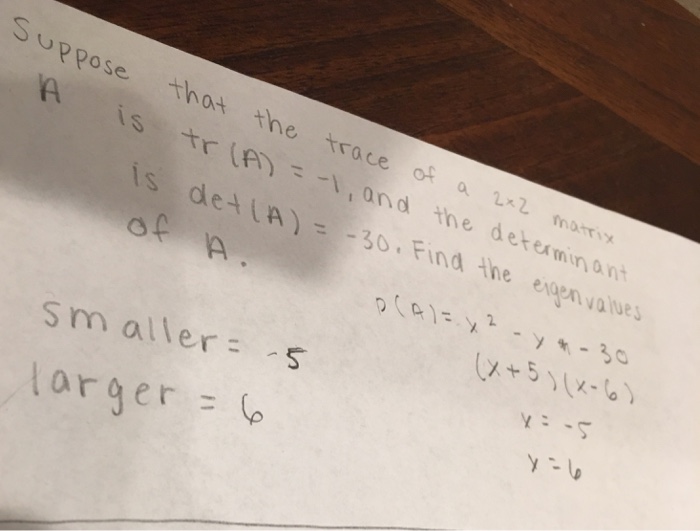 Suppose that the trace of a 2x2 matrix
A is tr(A) = -1, and the determinant
is det(A) = -30. Find the eigenvalues
of A.
smaller = -5
larger = 6
p(A) = x² - x - 30
(x+5)(x-6)
x = -5
x = 6